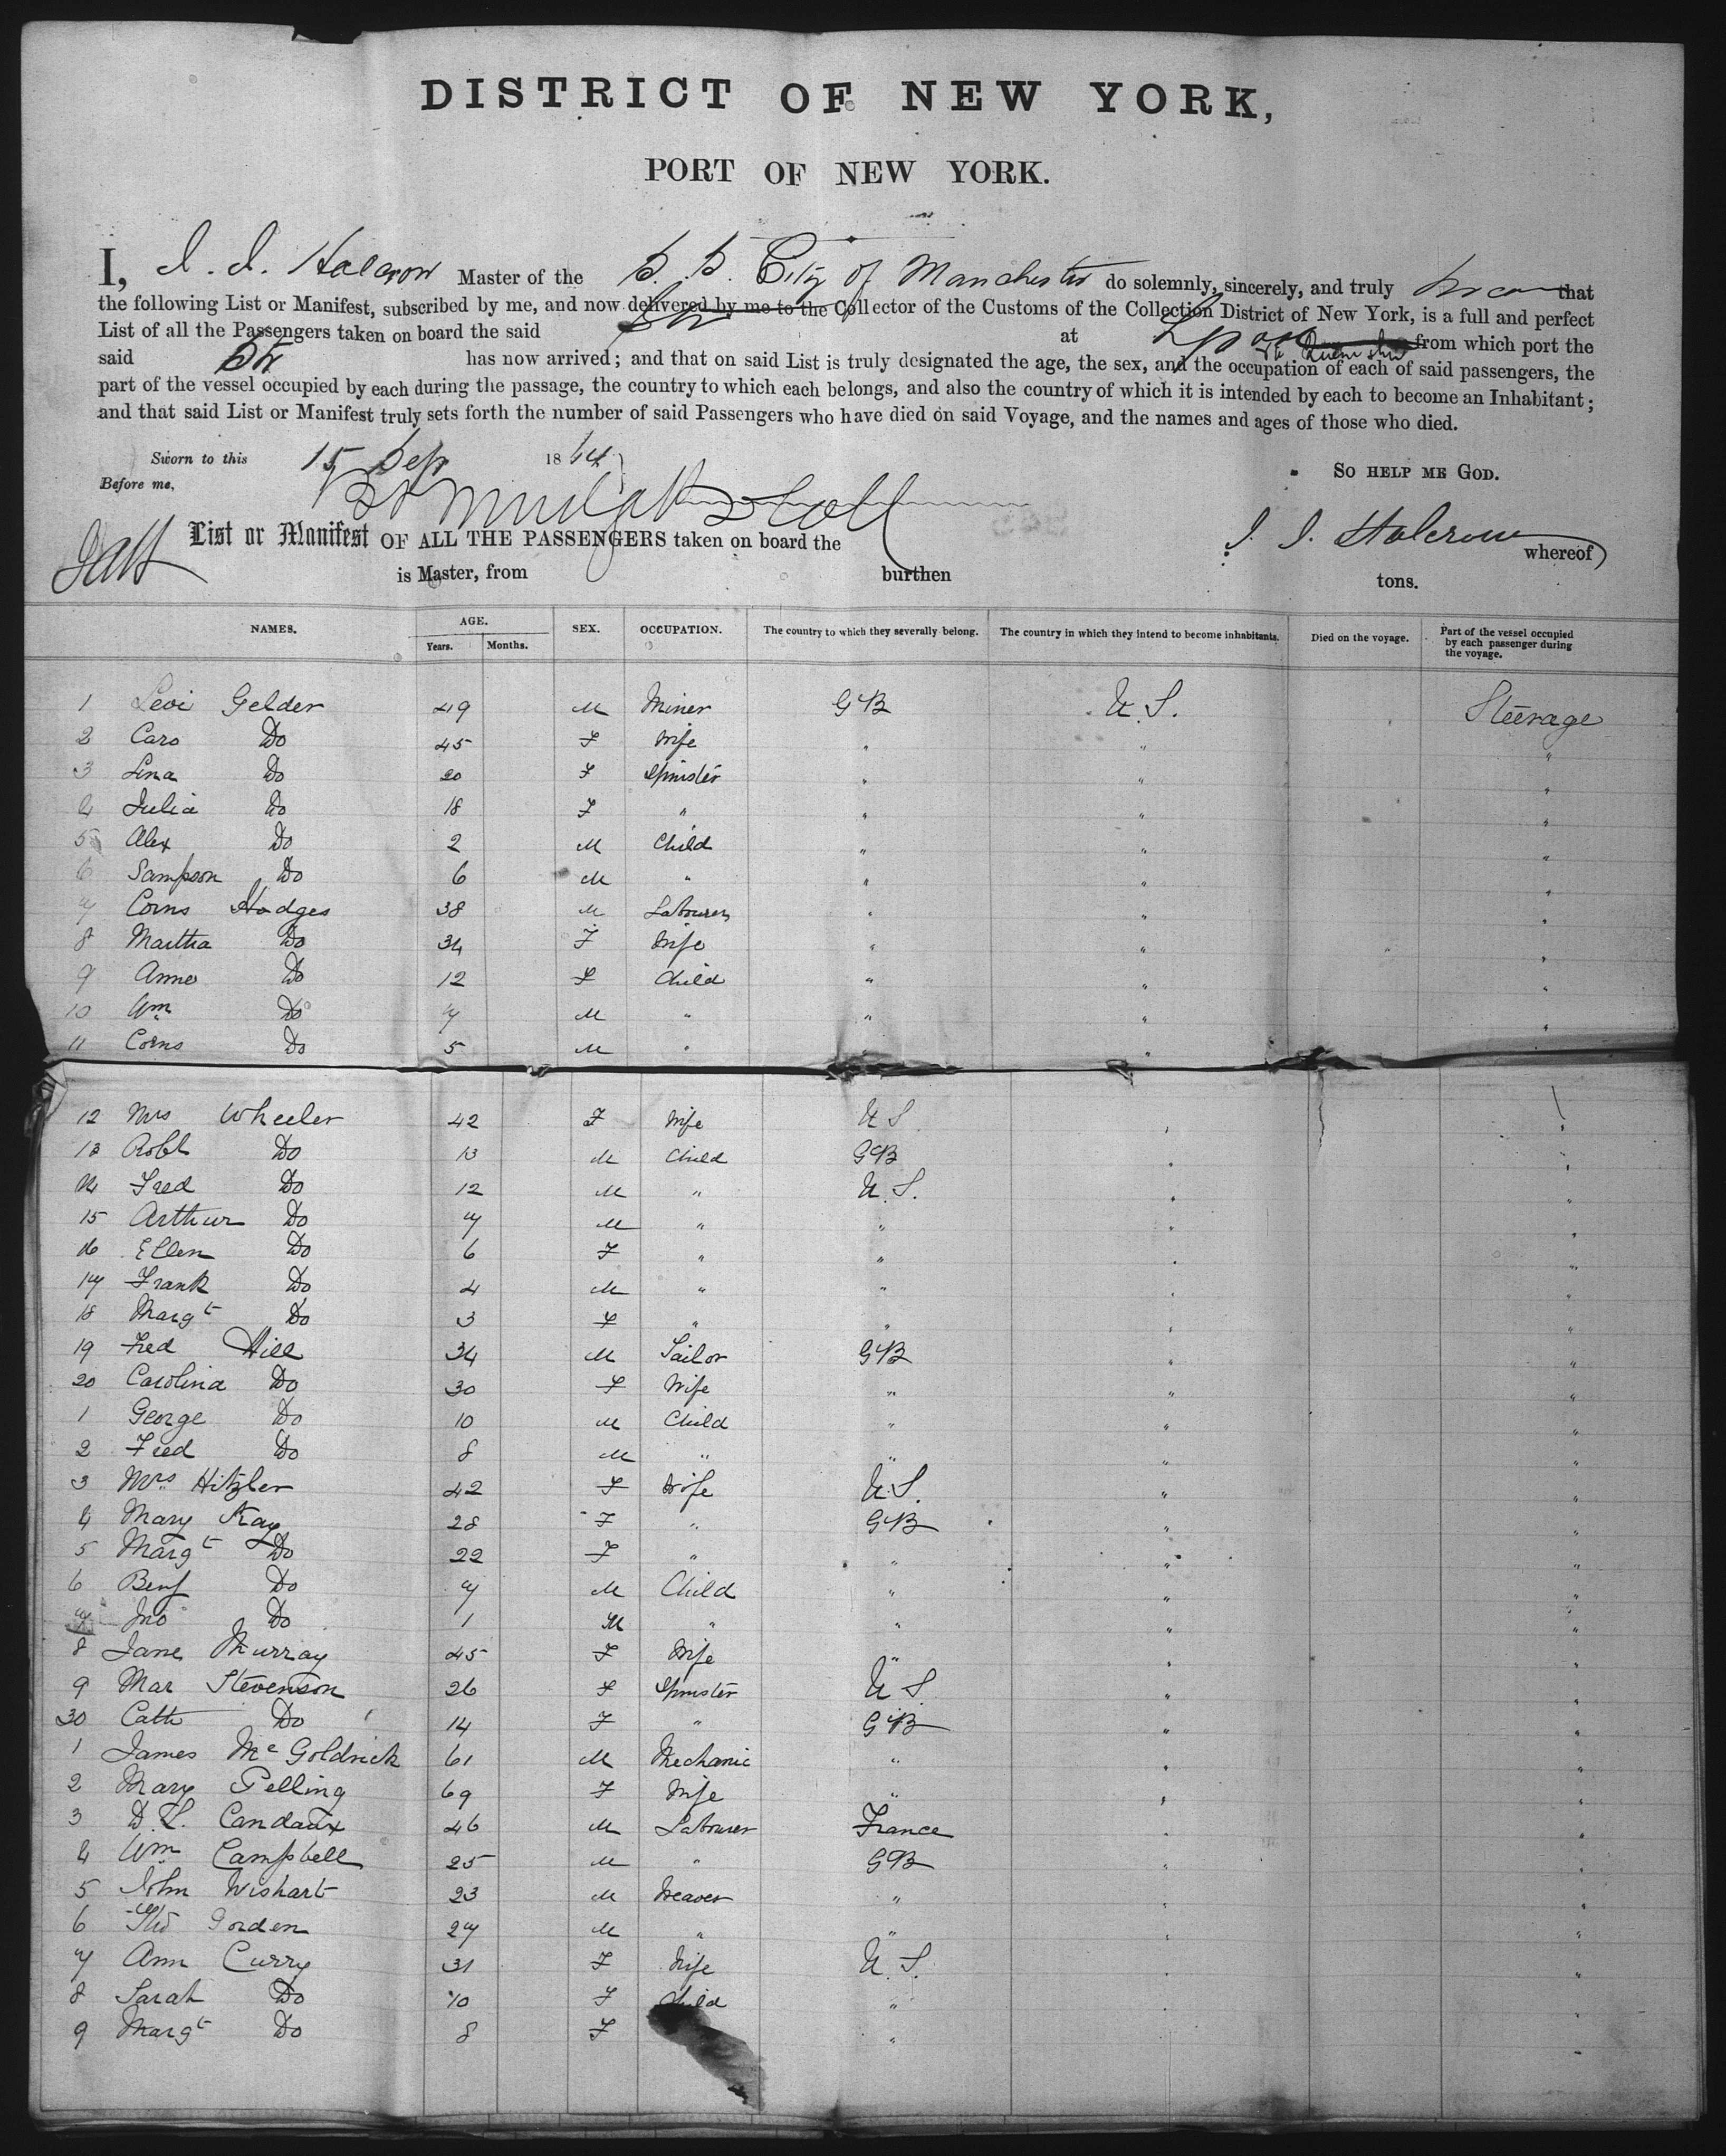 DISTRICT OF NEW YORK,
PORT OF NEW YORK.
I, J. J. Halcrow Master of the S. S. City of Manchester do solemnly, sincerely, and truly swear that
the following List or Manifest, subscribed by me, and now delivered by me to the Collector of the Customs of the Collection District of New York, is a full and perfect
List of all the Passengers taken on board the said at Lpool from which port the
said Str has now arrived; and that on said List is truly designated the age, the sex, and the occupation of each of said passengers, the
part of the vessel occupied by each during the passage, the country to which each belongs, and also the country of which it is intended by each to become an Inhabitant;
and that said List or Manifest truly sets forth the number of said Passengers who have died on said Voyage, and the names and ages of those who died.
Sworn to this 15 Sep 1864
SO HELP ME GOD.
Before me,
J. J. Halcrow
List or Manifest OF ALL THE PASSENGERS taken on board the whereof
is Master, from burthen tons.
NAMES. AGE. Years. Months. SEX. OCCUPATION. The country to which they severally belong. The country in which they intend to become inhabitants. Died on the voyage. Part of the vessel occupied by each passenger during the voyage.
1 Levi Gelder 49 M Miner GB U.S. Steerage
2 Caro Do 45 F Wife " " "
3 Lina Do 20 F Spinster " " "
4 Julia Do 18 F " " " "
5 Alex Do 2 M Child " " "
6 Sampson Do 6 M " " " "
7 Corns Hodges 38 M Labourer " " "
8 Martha Do 34 F Wife " " "
9 Anne Do 12 F Child " " "
10 Wm Do 7 M " " " "
11 Corns Do 5 M " " "
12 Mrs Wheeler 42 F Wife U S " "
13 Robt Do 13 M Child GB " "
14 Fred Do 12 M " U.S. " "
15 Arthur Do 7 M " " " "
16 Ellen Do 6 F " " " "
17 Frank Do 4 M " " " "
18 Margt Do 3 F " " " "
19 Fred Hill 34 M Tailor GB " "
20 Carolina Do 30 F Wife " " "
1 George Do 10 M Child " " "
2 Fred Do 8 M " " " "
3 Mrs Hitzler 42 F Wife U.S. " "
4 Mary Kay 28 F " GB " "
5 Margt Do 22 F " " " "
6 Benj Do 7 M Child " " "
7 Jno Do 1 M " " " "
8 Jane Murray 45 F Wife " " "
9 Mar Stevenson 26 F Spinster U S. " "
30 Cath Do 14 F " GB " "
1 James McGoldrick 61 M Mechanic " " "
2 Mary Pelling 69 F Wife " " "
3 D. L. Candaux 46 M Labourer France " "
4 Wm Campbell 25 M " GB " "
5 John Wishart 23 M Weaver " " "
6 Gorden 27 M " " " "
7 Ann Curry 31 F Wife U.S. " "
8 Sarah Do 10 F Child " " "
9 Margt Do 8 F " "